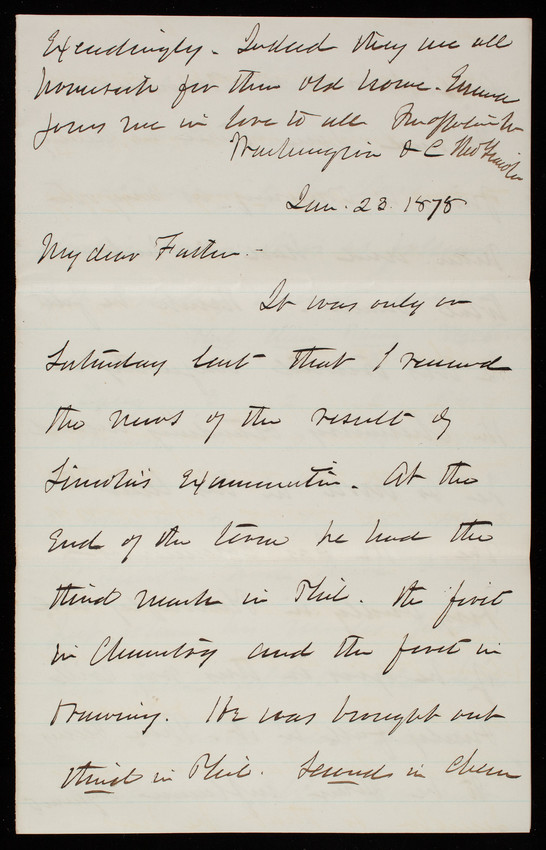 Exceedingly. Indeed they are all
homesick for their old home. Emma
joins me in love to all
Washington D C
Jan. 23. 1878
My dear Father -
It was only on
Saturday last that I received
the news of the result of
Lincoln's Examination. At the
End of the term he had the
third mark in Phil. the first
in Chemistry and the first in
drawing. He was brought out
third in Phil. Second in Chem